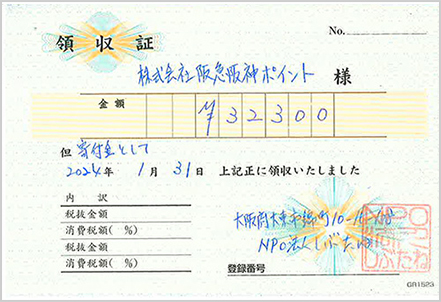 No.
領収証
株式会社阪急阪神ポイント 様
金額 ¥32300
但 寄付金として
2024年 1月 31日 上記正に領収いたしました
内訳
税抜金額
消費税額( %)
税抜金額
消費税額( %)
大阪府大東市郷町10-
NPO法人しぶたね
登録番号
GR1523